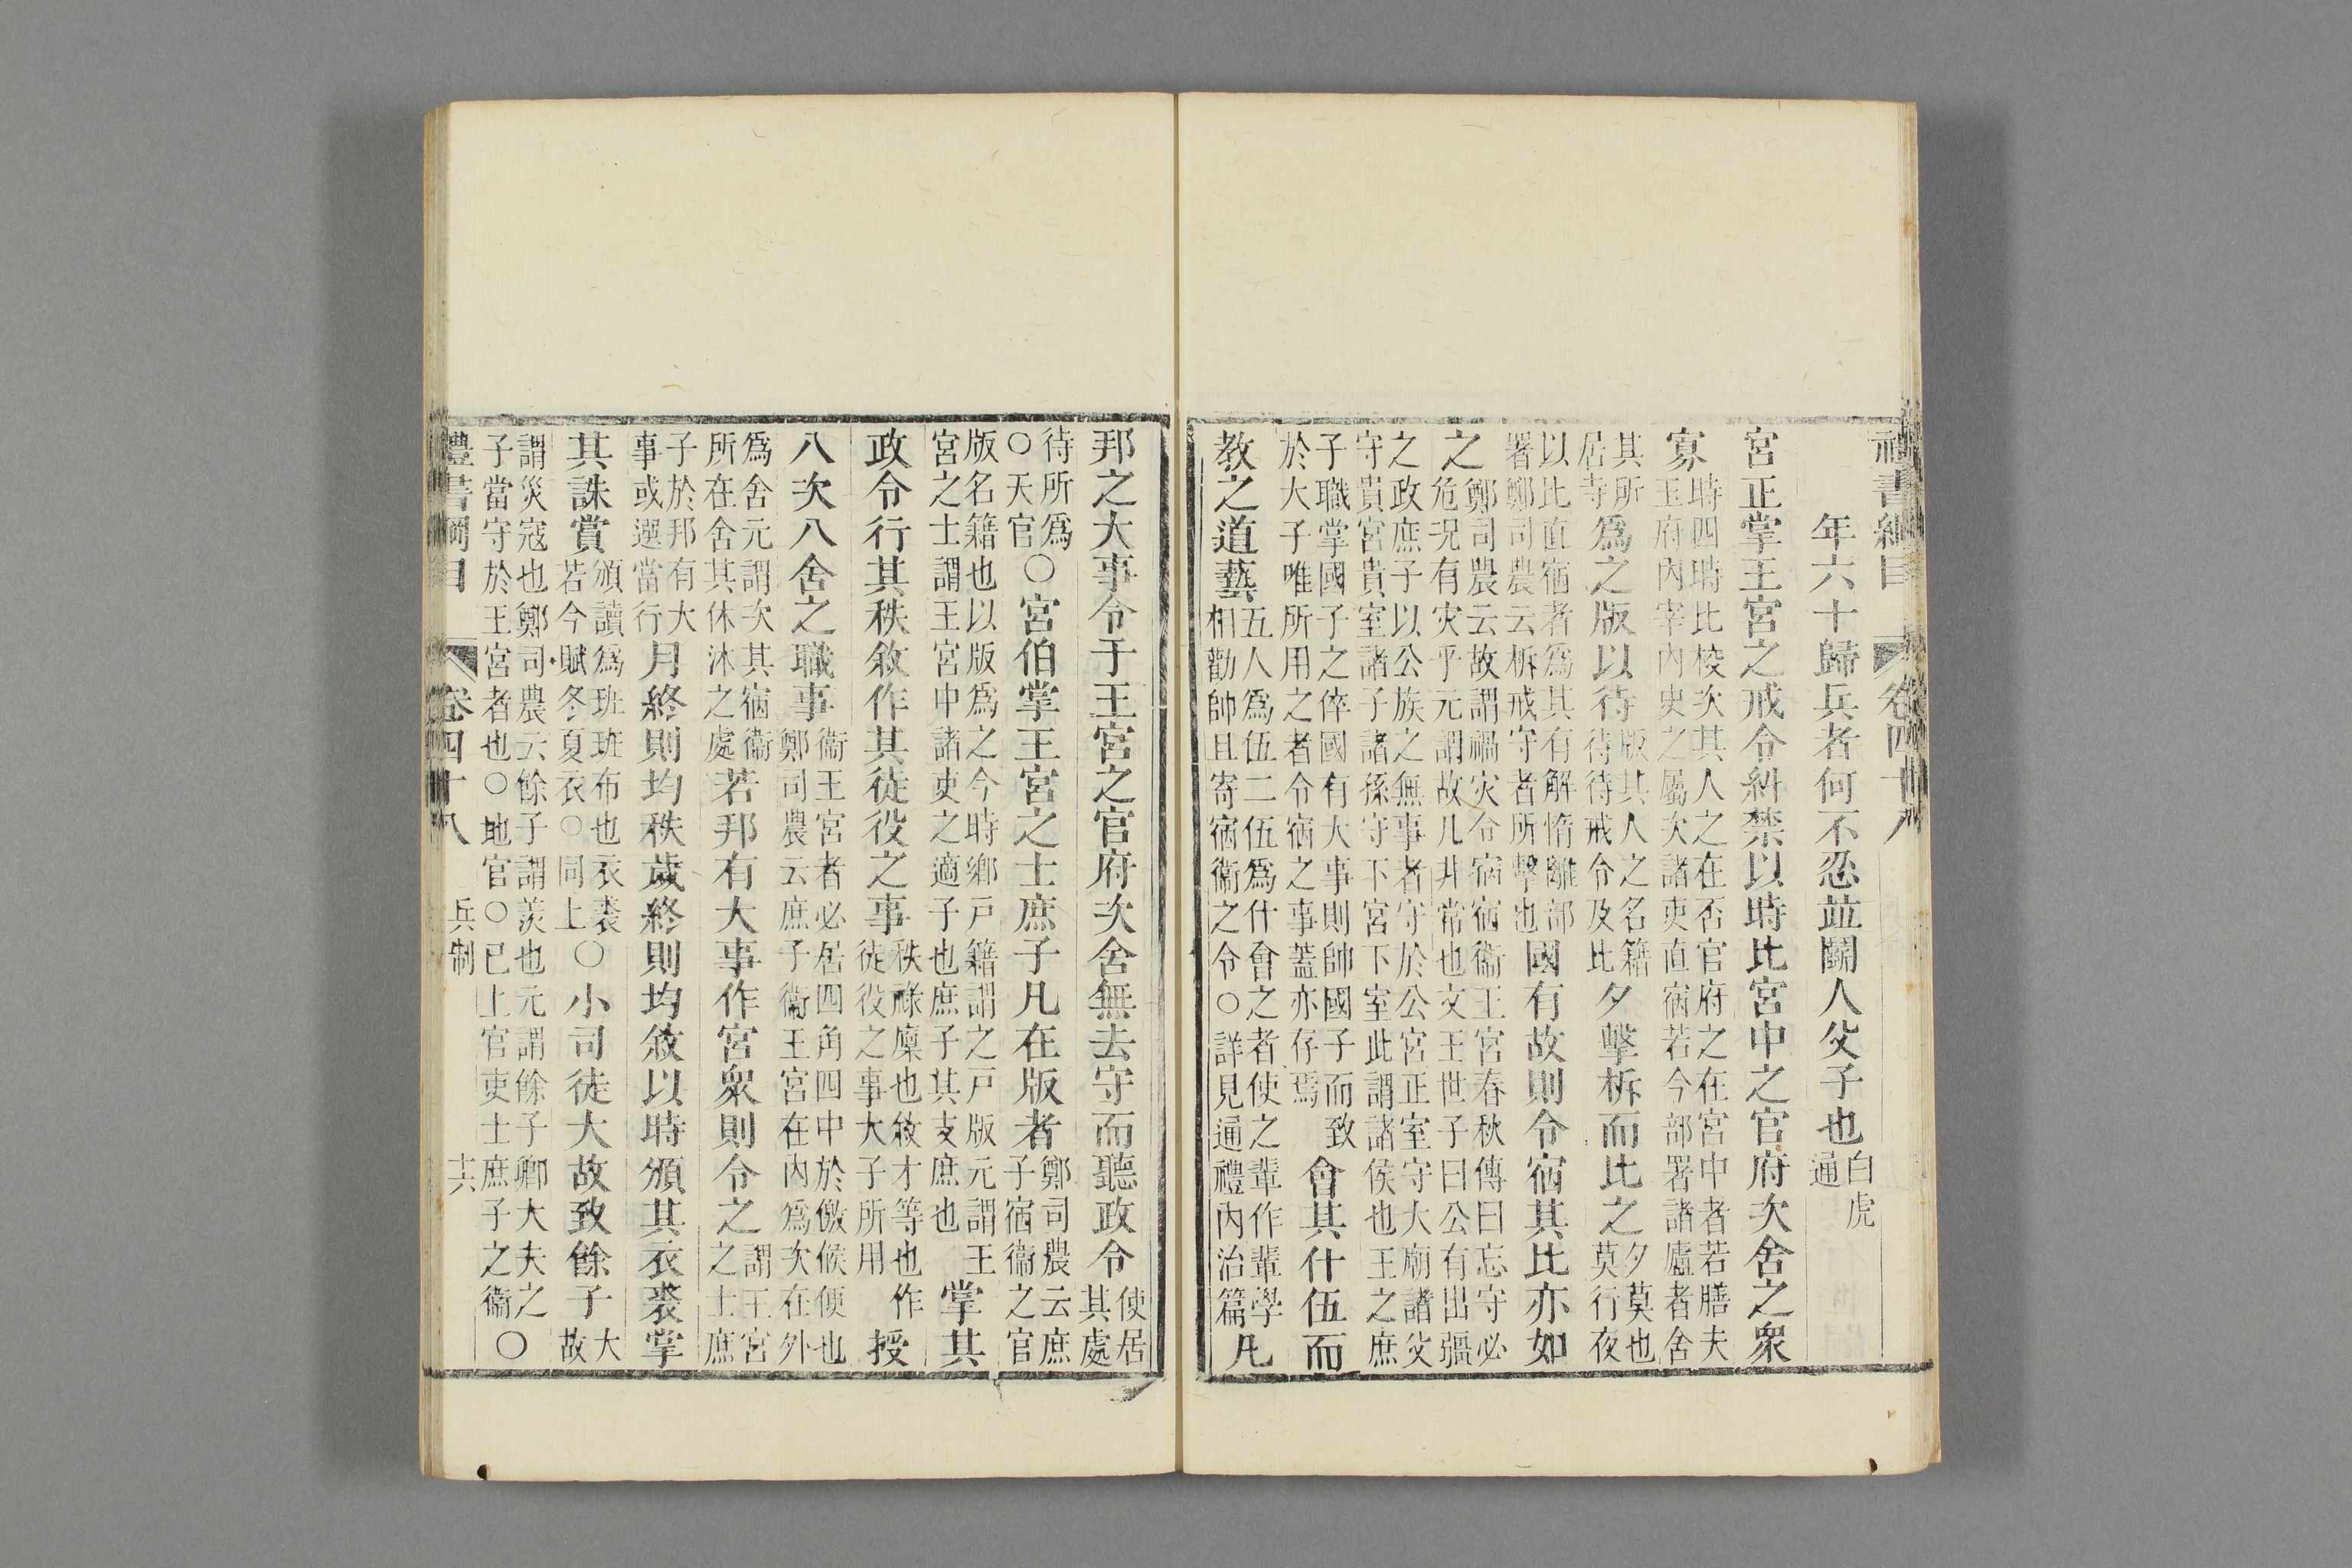 禮書綱目　卷四十八
年六十歸兵者何不忍並鬬人父子也白虎通
宮正掌王宮之戒令糾禁以時比宮中之官府次舍之衆
寡時四時比校次其人之在否官府之在宮中者若膳夫玉府內宰內史之屬次諸吏直宿若今部署諸廬者舍
其所居寺爲之版以待版其人之名籍待待戒令及比夕擊柝而比之夕莫也莫行夜
以比直宿者爲其有解惰離部署鄭司農云柝戒守者所擊也國有故則令宿其比亦如
之鄭司農云故謂禍灾令宿宿衞王宮春秋傳曰忘守必危況有灾乎元謂故凡非常也文王世子曰公有出疆
之政庶子以公族之無事者守於公宮正室守大廟諸父守貴宮貴室諸子諸孫守下宮下室此謂諸侯也王之庶
子職掌國子之倅國有大事則帥國子而致於大子唯所用之者令宿之事蓋亦存焉會其什伍而
教之道藝五人爲伍二伍爲什會之者使之輩作輩學相勸帥且寄宿衞之令○詳見通禮內治篇凡
邦之大事令于王宮之官府次舍無去守而聽政令使居其處
待所爲○天官○宮伯掌王宮之士庶子凡在版者鄭司農云庶子宿衞之官
版名籍也以版爲之今時鄉戸籍謂之戸版元謂王宮之士謂王宮中諸吏之適子也庶子其支庶也掌其
政令行其秩敘作其徒役之事秩祿廩也敘才等也作徒役之事大子所用授
八次八舍之職事衞王宮者必居四角四中於徼候便也鄭司農云庶子衞王宮在內爲次在外
爲舍元謂次其宿衞所在舍其休沐之處若邦有大事作宮衆則令之謂王宮之士庶
子於邦有大事或選當行月終則均秩歲終則均敘以時頒其衣裘掌
其誅賞頒讀爲班班布也衣裘若今賦冬夏衣○同上○小司徒大故致餘子大故
謂災寇也鄭司農云餘子謂羨也元謂餘子卿大夫之子當守於王宮者也○地官○已上官吏士庶子之衞○
禮書綱目　卷四十八　兵制　十六